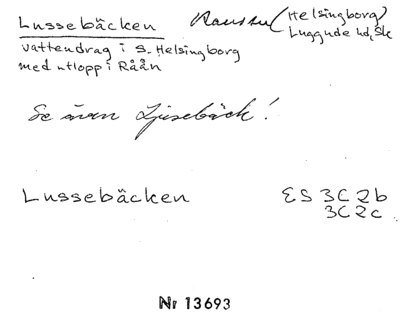 Lussebäcken
Raus sn (Helsingborg)
Luggude hd, Sk
vattendrag i S. Helsingborg
med utlopp i Råån
Se även Ljusebäck!
Lussebäcken
ES 3C2b
3C2c
Nr 13693